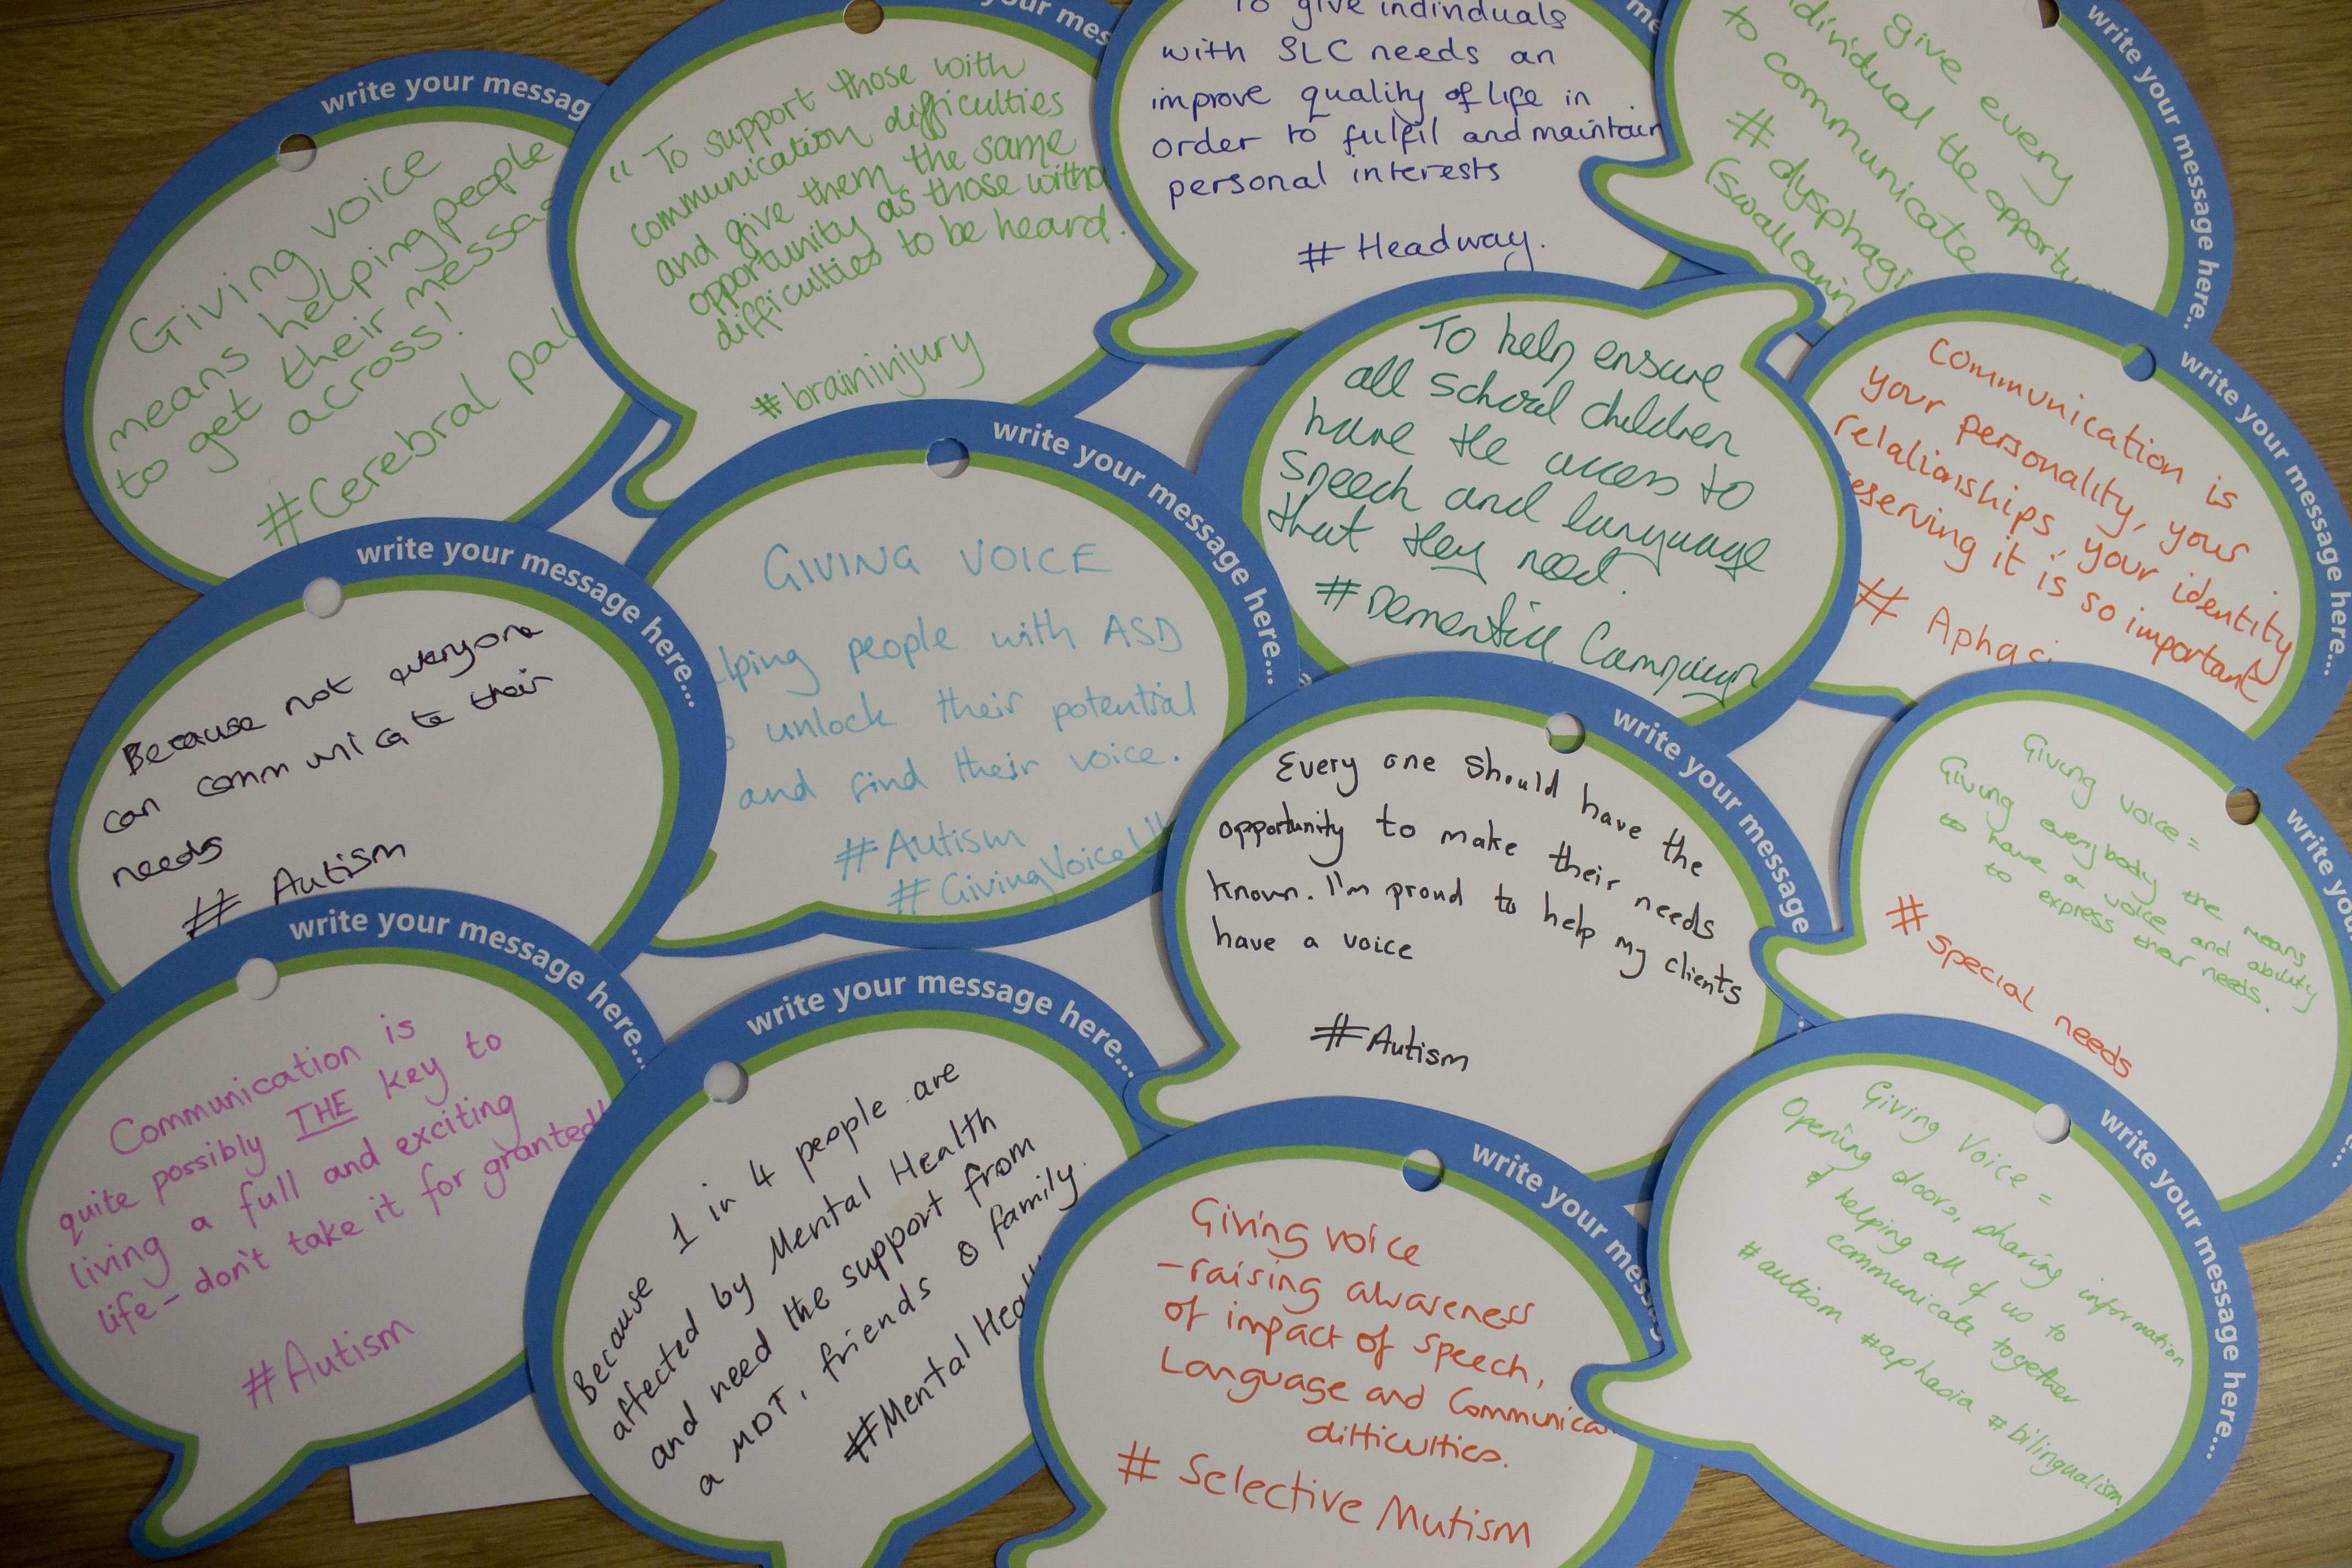 write your message
Giving voice
means helping people
to get their messa
across!
#Cerebral pal
your mes
" To support those with
communication difficulties
and give them the same
opportunity as those witho
difficulties to be heard.
#braininjury
To give individuals
with SLC needs an
improve quality of life in
order to fulfil and maintain
personal interests
# Headway.
me
give every
individual the opportuni
to communicate
# dysphagi
(swallowing
write your message here...
To help ensure
all school children
have the access to
speech and language
that they need.
# Dementia Campaign
write your message here...
Communication is
your personality, your
relationships, your identity
eserving it is so important
# Aphasi
write your message here...
Because not everyone
can communicate their
needs
# Autism
write your message here...
GIVING VOICE
lping people with ASD
o unlock their potential
and find their voice.
#Autism
#GivingVoiceUK
write your message
Every one should have the
opportunity to make their needs
known. I'm proud to help my clients
have a voice
#Autism
write you
Giving voice =
Giving everybody the means
to have a voice and ability
to express their needs.
# special needs
write your message here...
Communication is
quite possibly THE key to
living a full and exciting
life - don't take it for granted!
#Autism
write your message here...
Because 1 in 4 people are
affected by Mental Health
and need the support from
a MDT, friends & family.
#Mental Heal
write your messag
Giving voice
-raising awareness
of impact of speech,
Language and Communica
difficulties.
# Selective Mutism
write your message here...
Giving Voice =
Opening doors, sharing information
& helping all of us to
communicate together
#autism #aphasia #bilingualism